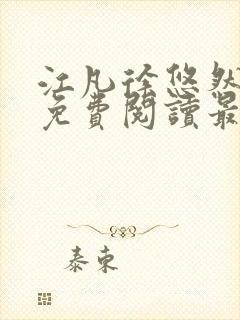 江凡徐悠然
免費閱讀最
泰束